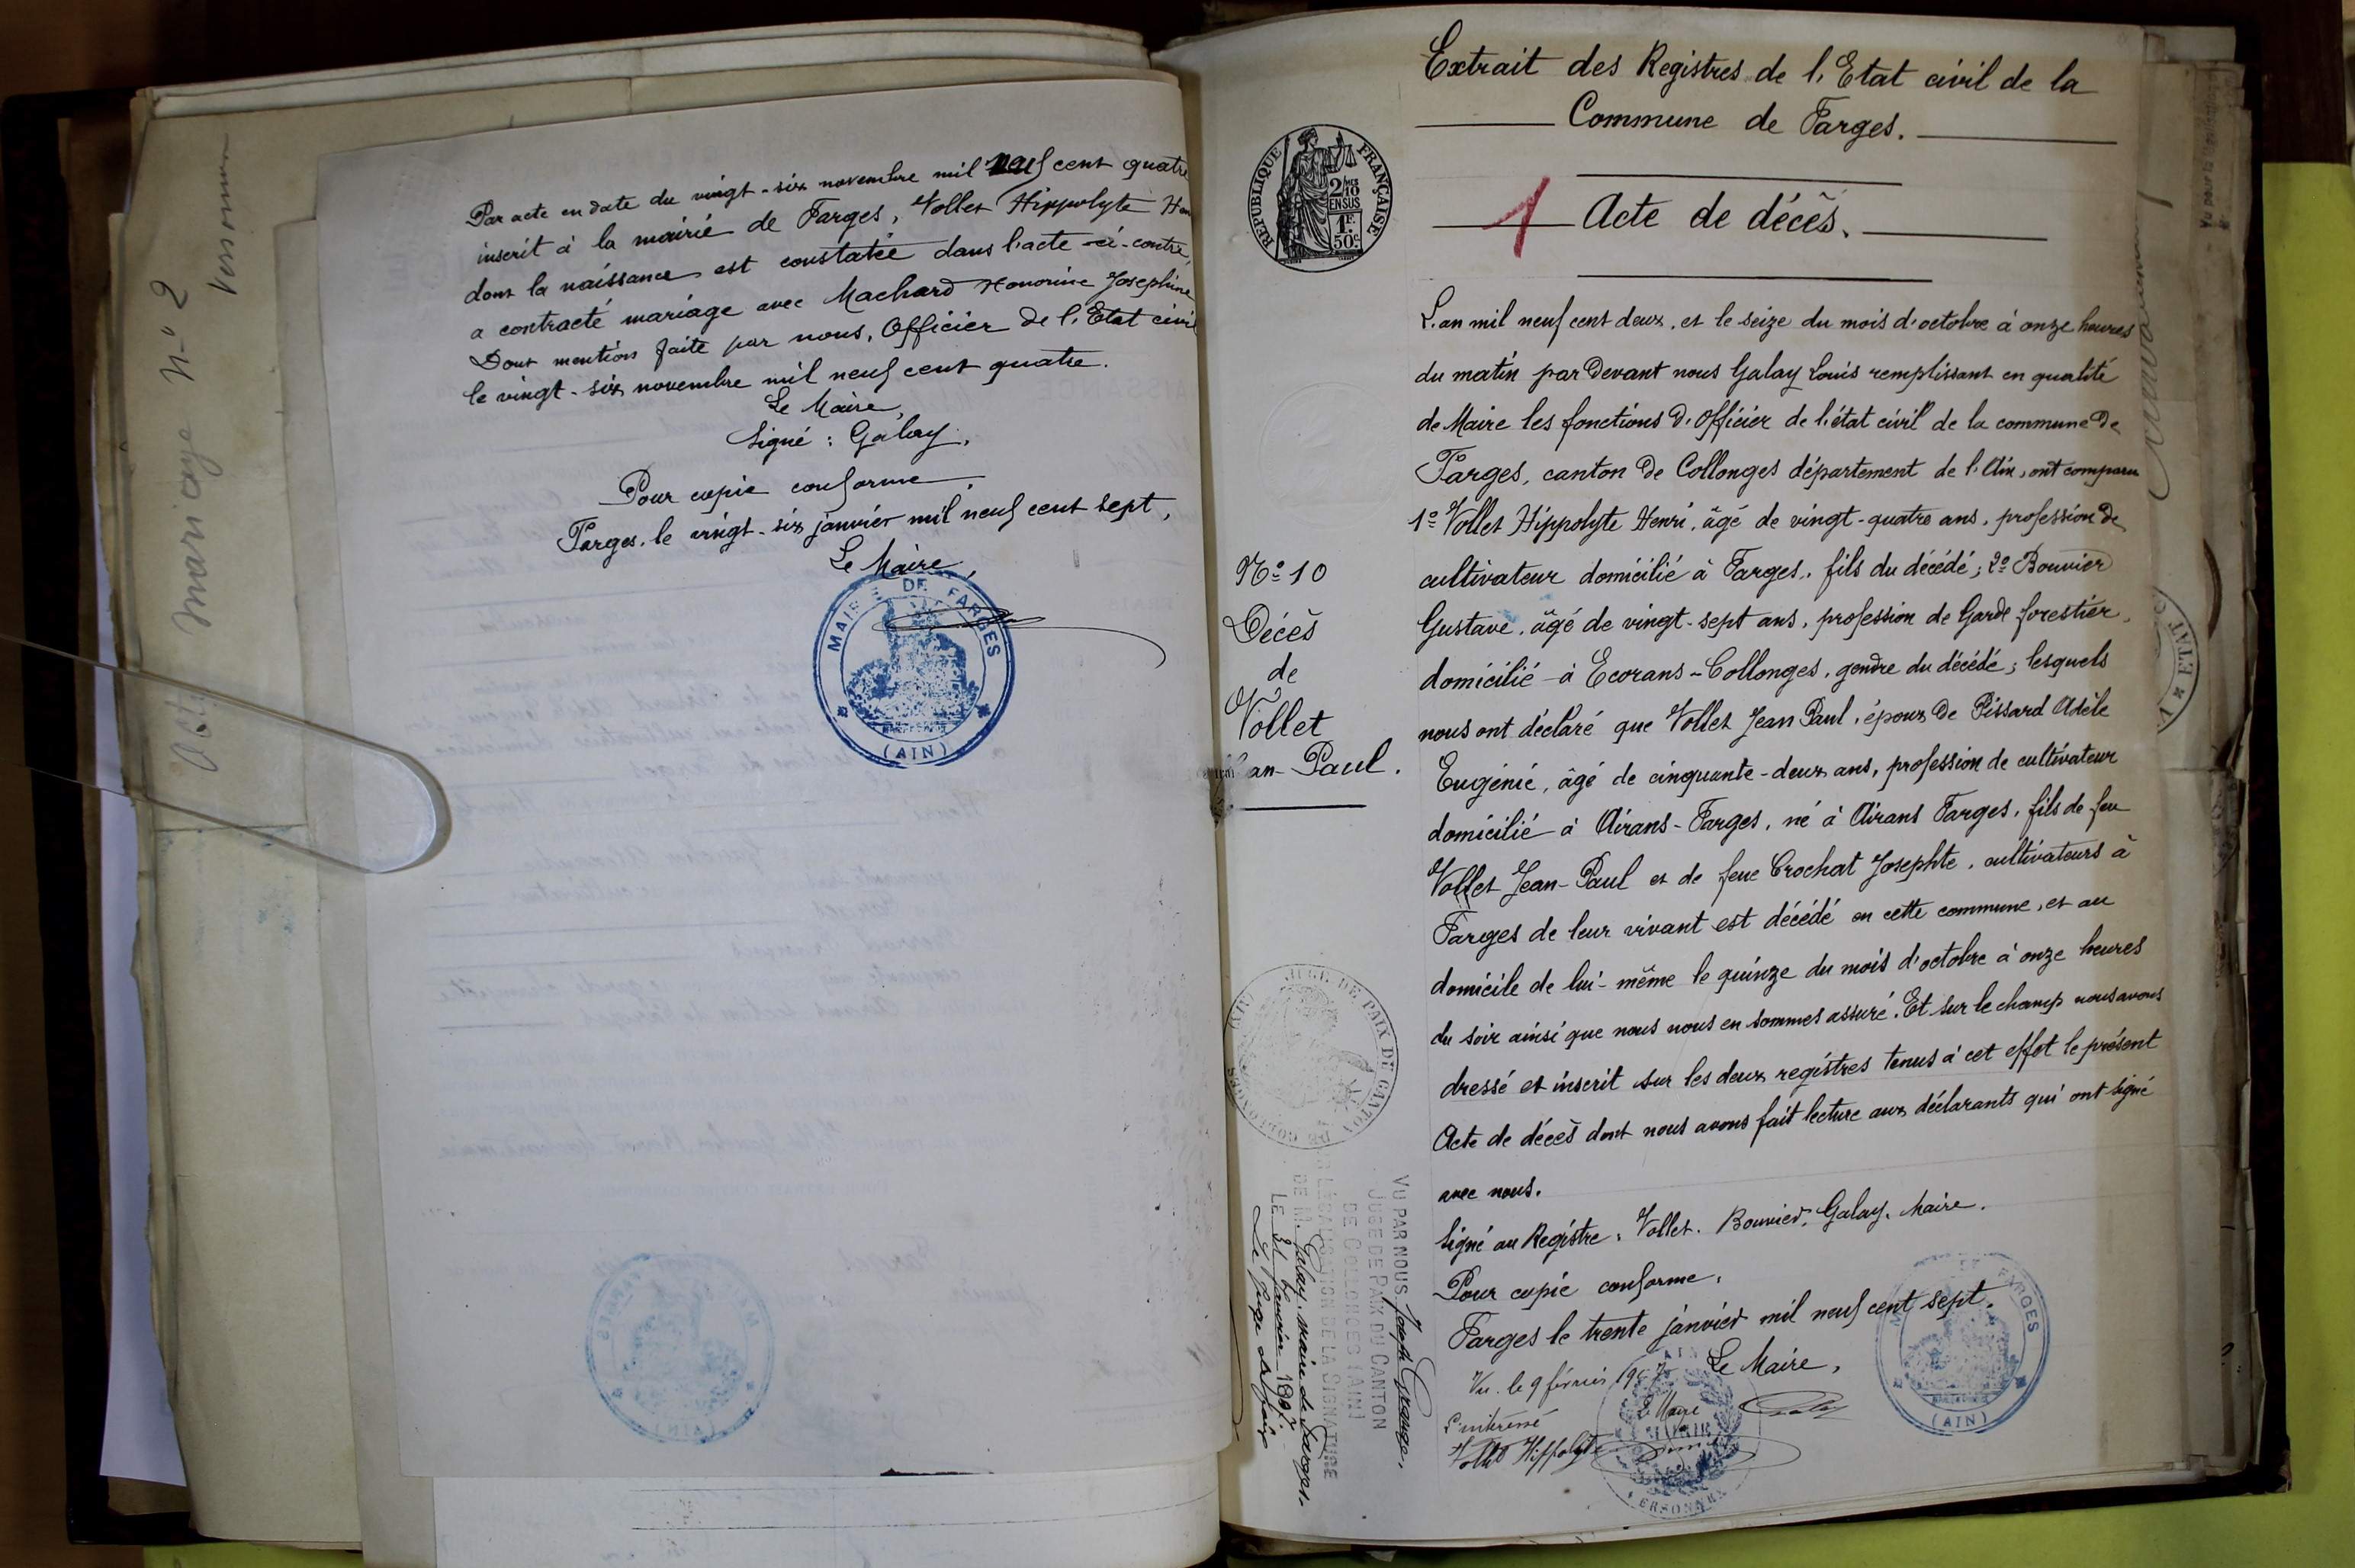 mariage N° 2
Par acte en date du vingt-six novembre mil neuf cent quatre
inscrit à la mairie de Farges, Vollet Hippolyte
dont la naissance est constatée dans l'acte ci-contre,
a contracté mariage avec Machard Honorine Josephine
Dont mention faite par nous, Officier de l'Etat civil
le vingt-six novembre mil neuf cent quatre.
Le Maire,
Signé : Galay.
Pour copie conforme,
Farges, le vingt-six janvier mil neuf cent sept,
Le Maire,
MAIRIE DE FARGES
(AIN)
Extrait des Registres de l'Etat civil de la
Commune de Farges.
RÉPUBLIQUE FRANÇAISE
2/10
EN SUS
1F.
50c
1
Acte de décès.
L'an mil neuf cent deux, et le seize du mois d'octobre à onze heures
du matin par devant nous Galay Louis remplissant en qualité
de Maire les fonctions d'Officier de l'état civil de la commune de
Farges, canton de Collonges département de l'Ain, ont comparu
1° Vollet Hippolyte Henri, âgé de vingt-quatre ans, profession de
cultivateur domicilié à Farges, fils du décédé ; 2° Bouvier
Gustave, âgé de vingt-sept ans, profession de Garde forestier,
domicilié à Ecorans-Collonges, gendre du décédé ; lesquels
nous ont déclaré que Vollet Jean Paul, époux de Pissard Adèle
Eugénie, âgé de cinquante-deux ans, profession de cultivateur
domicilié à Airans-Farges, né à Airans Farges, fils de feu
Vollet Jean-Paul et de feue Crochat Josephte, cultivateurs à
Farges de leur vivant est décédé en cette commune, et au
domicile de lui-même le quinze du mois d'octobre à onze heures
du soir ainsi que nous nous en sommes assuré. Et sur le champ nous avons
dressé et inscrit sur les deux registres tenus à cet effet le présent
Acte de décès dont nous avons fait lecture aux déclarants qui ont signé
avec nous.
Signé au Registre : Vollet. Bouvier. Galay, Maire.
Pour copie conforme,
Farges le trente janvier mil neuf cent sept.
Le Maire,
Vu le 9 février 1907
L'intéressé
Vollet Hippolyte
Le Maire
N° 10
Décès
de
Vollet
an-Paul.
JUGE DE PAIX DU CANTON DE COLLONGES (AIN)
VU PAR NOUS Joseph Grange,
JUGE DE PAIX DU CANTON
DE COLLONGES (AIN)
LÉGALISATION DE LA SIGNATURE
DE M. Galay, maire de Farges.
LE 31 Janvier 1907
Le Juge de Paix
FARGES
(AIN)